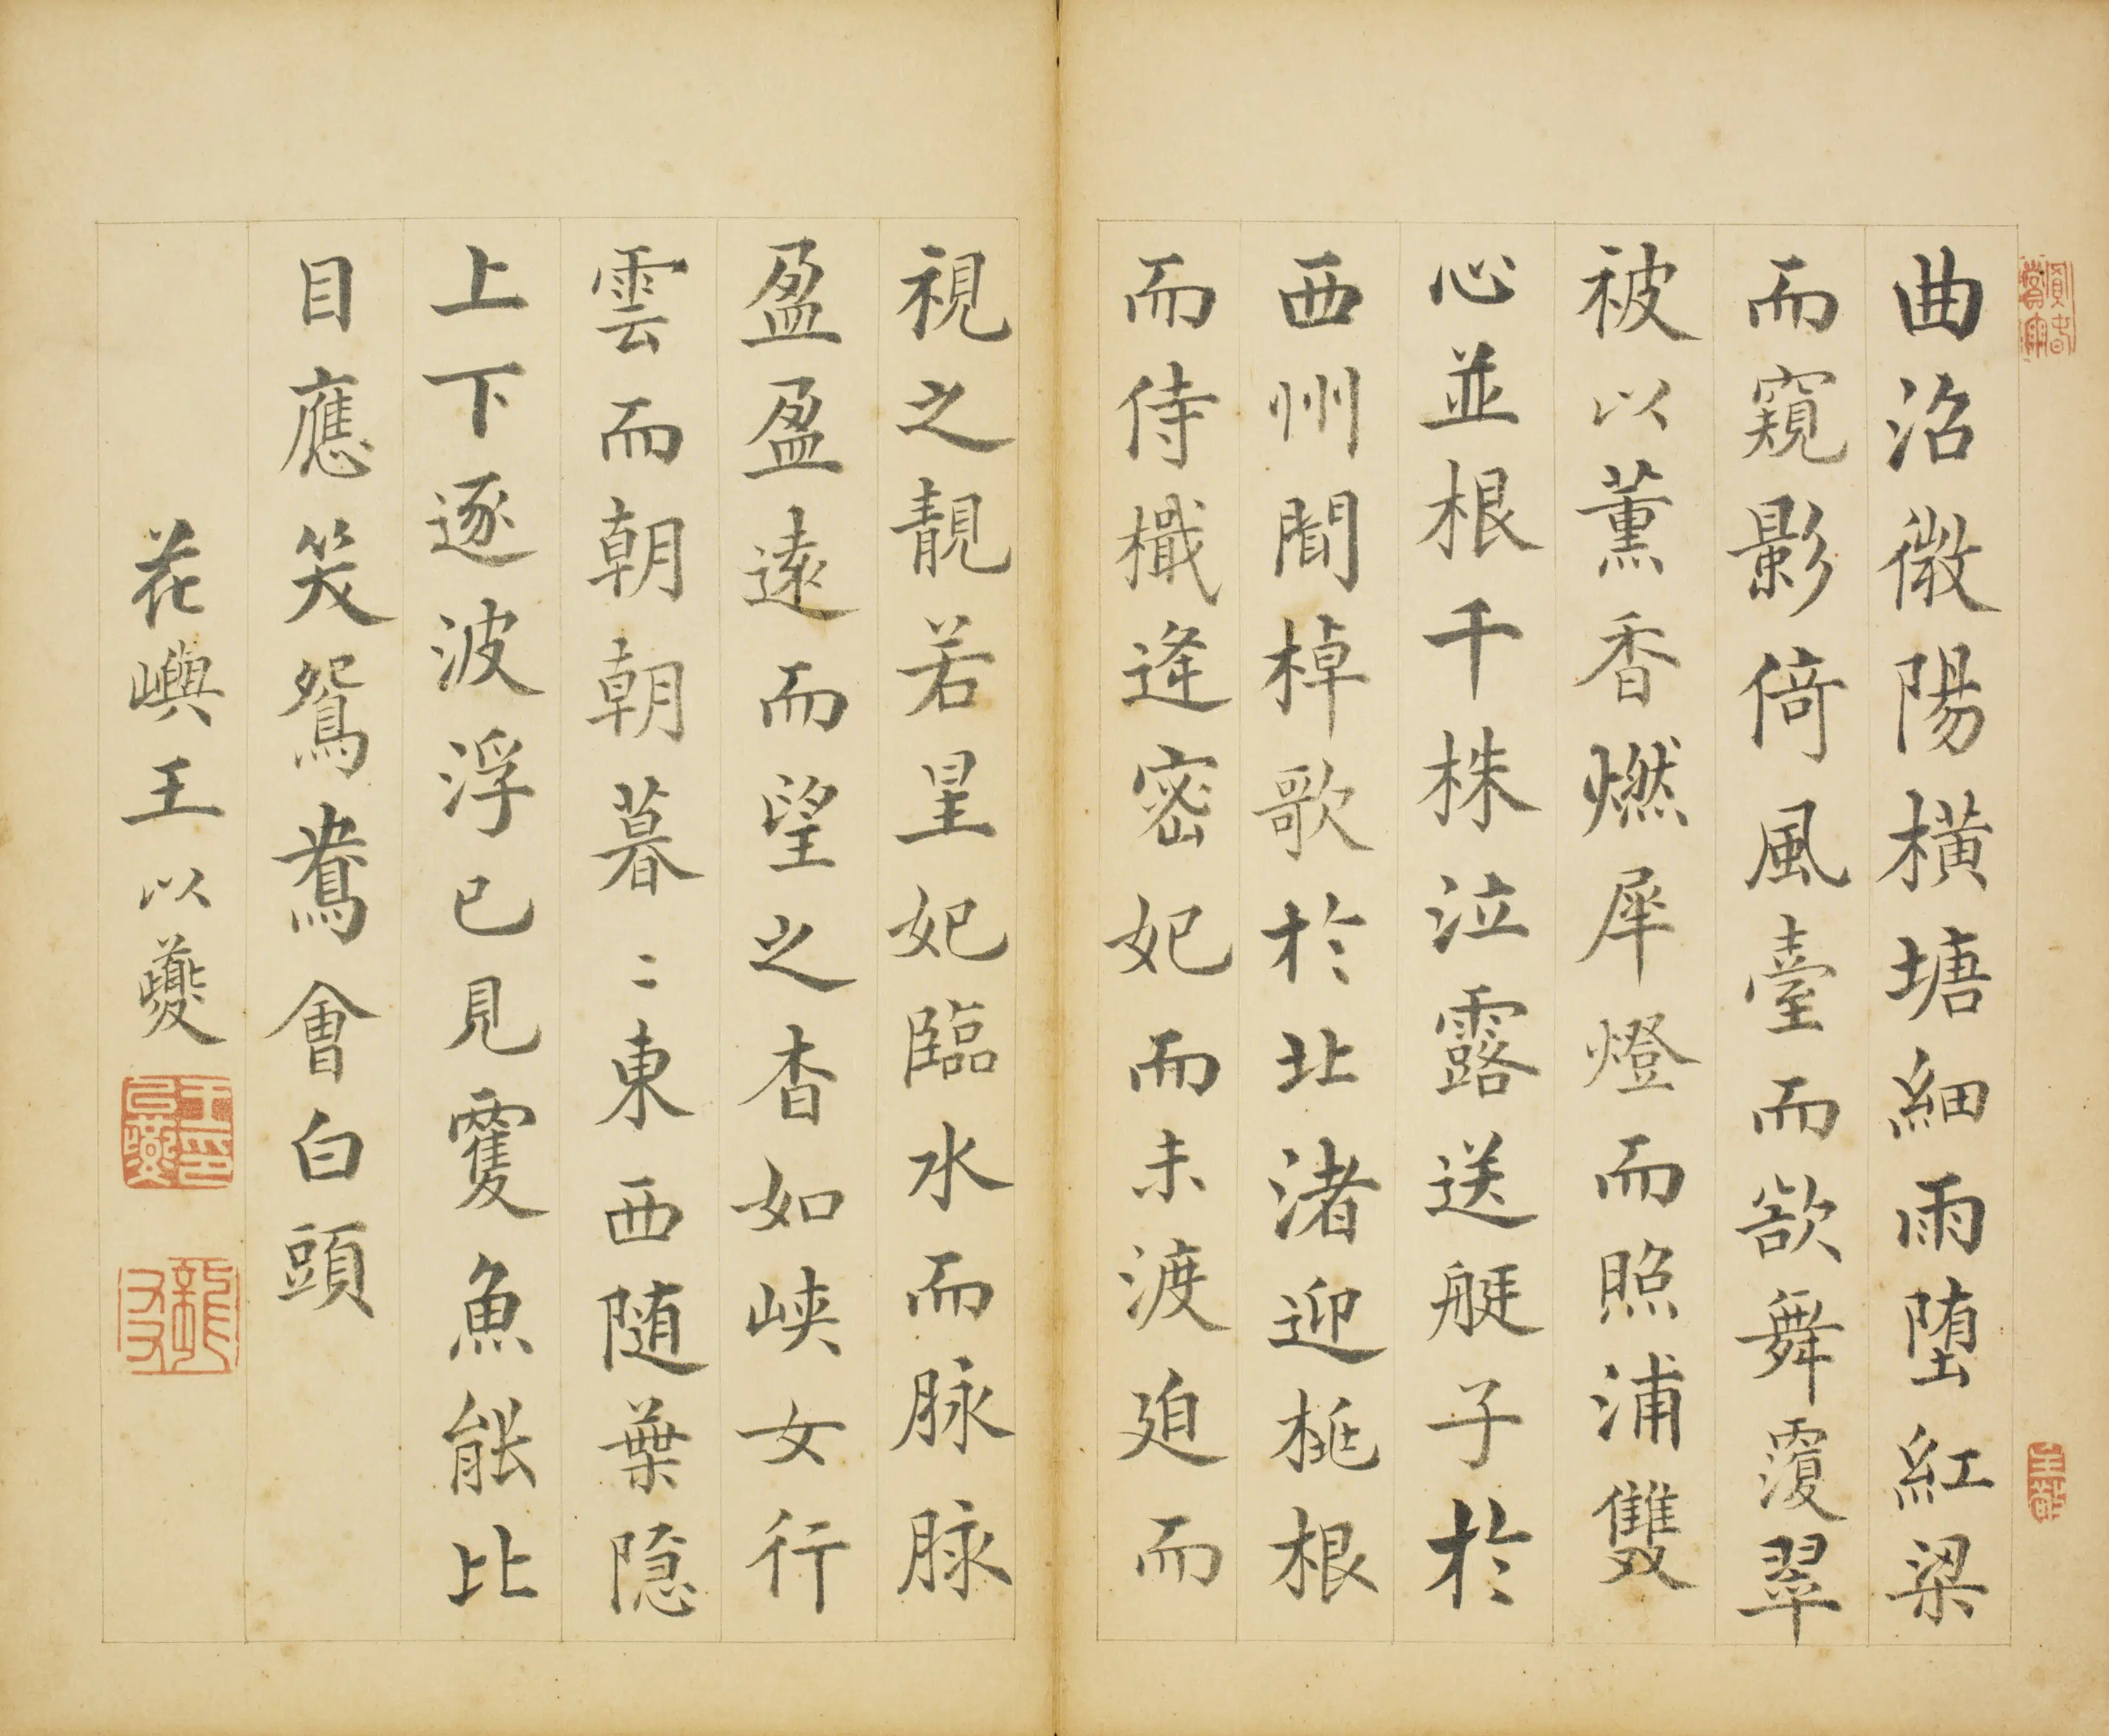 曲沼微陽橫塘細雨墮紅梁
而窺影倚風臺而欲舞覆翠
被以薰香燃犀燈而照浦雙
心並根千株泣露送艇子於
西州聞棹歌於北渚迎桃根
而待檝逢宓妃而未渡迫而
視之靚若星妃臨水而脉脉
盈盈遠而望之杳如峽女行
雲而朝朝暮〻東西隨葉隱
上下逐波浮已見雙魚能比
目應笑鴛鴦會白頭
花嶼王以夔